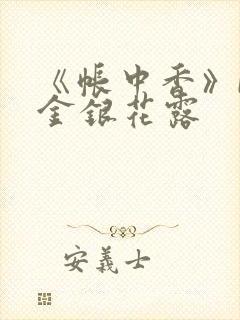 《帐中香》
金银花露
安义士